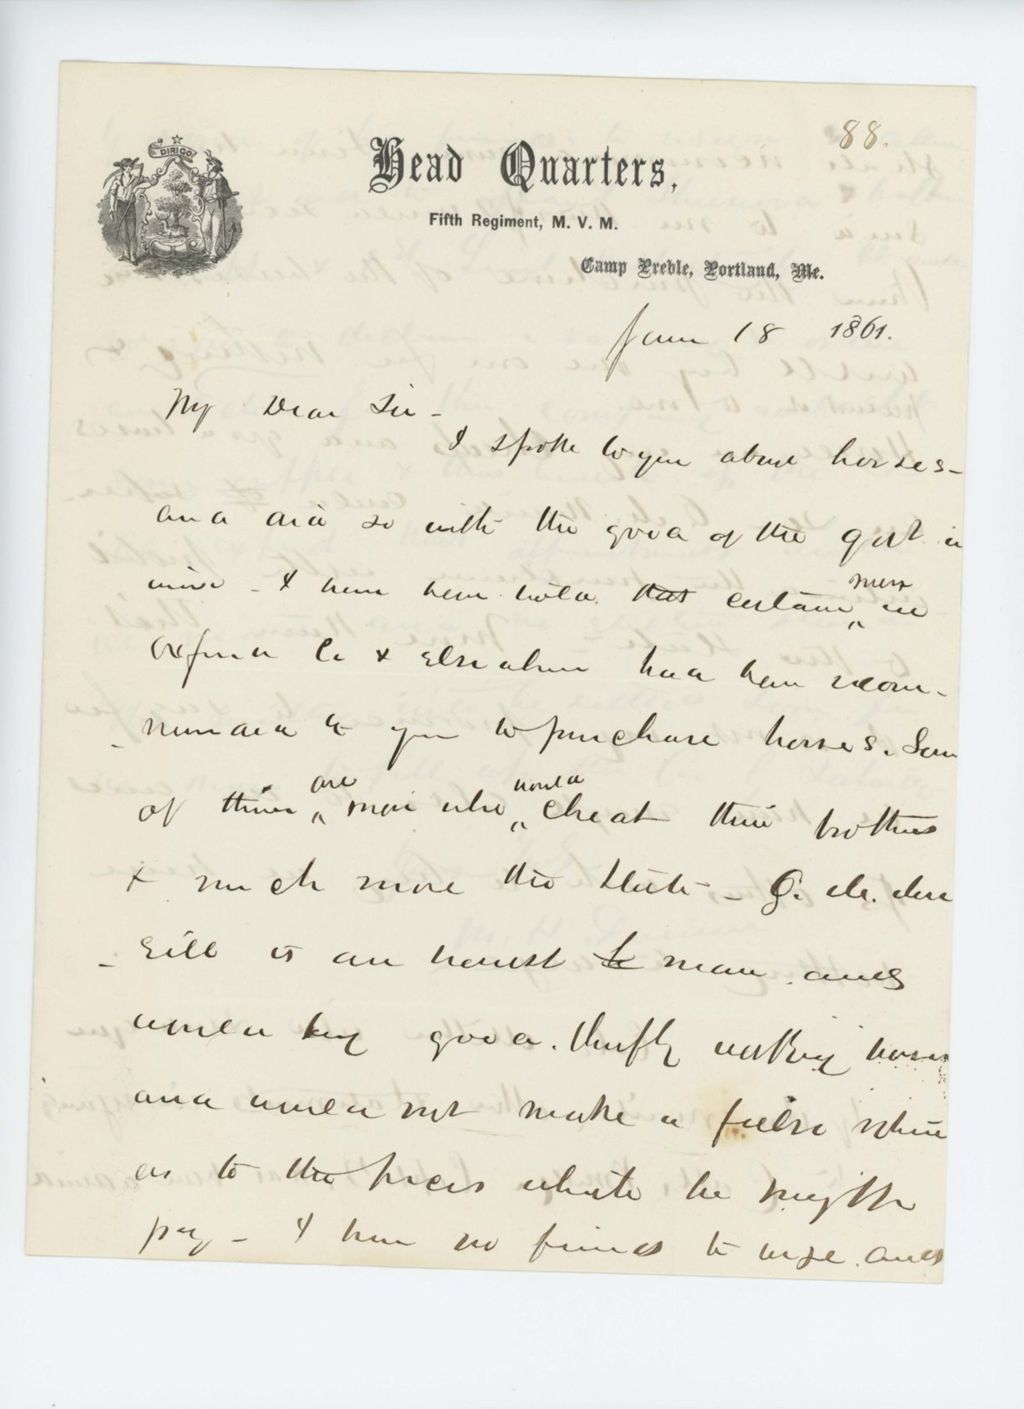 88.
DIRIGO
Head Quarters,
Fifth Regiment, M. V. M.
Camp Preble, Portland, Me.
June 18 1861.
My Dear Sir -
I spoke to you about horses -
and did so with the good of the govt in
view - I have been told that certain men in
Oxford Co & elsewhere had been recom-
-mended to you to purchase horses. Some
of them are men who would cheat their brothers
& much more the State - G. W.
is an honest man. and
would buy good. thrifty working horses
and would not make a false return
as to the prices which he might
pay - I have no friends to urge. and